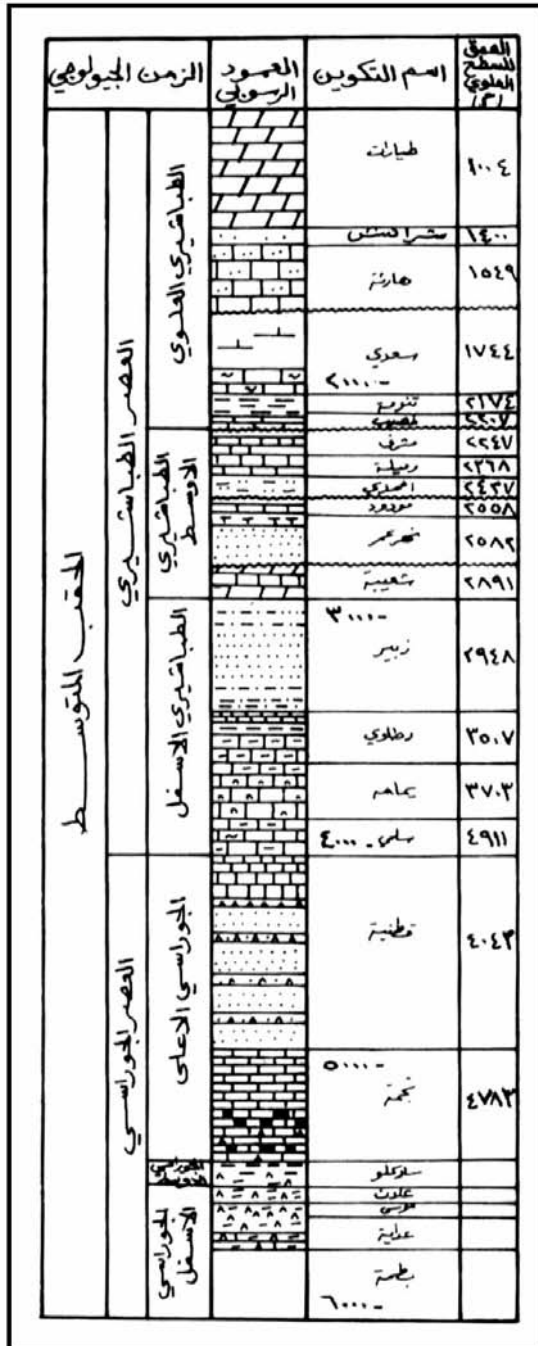 الزمن الجيولوجي
العمود الرسوبي
اسم التكوين
العمق للسطح العلوي (م)
الحقب المتوسط
العصر الطباشيري
الطباشيري العلوي
طيارات
١٠٠٤
١٤٠٠
هارثة
١٥٤٩
سعدي
١٧٤٤
-٢٠٠٠
تنومة
٢١٧٤
٢٢٠٧
الطباشيري الاوسط
مشرف
٢٢٤٧
رميلة
٢٣٦٨
احمدي
٢٤٢٧
مودود
٢٥٥٨
نهر عمر
٢٥٨٢
شعيبة
٢٨٩١
الطباشيري الاسفل
٣٠٠٠-
زبير
٢٩٤٨
رطاوي
٣٥٠٧
يمامه
٣٧٠٣
سلي
٤٠٠٠-
٤٩١١
العصر الجوراسي
الجوراسي الاعلى
قطنية
٤٠٤٣
٥٠٠٠-
نجمة
٤٧٨٣
الجوراسي الاوسط
ساركلو
الجوراسي الاسفل
علان
موس
عداية
بطمة
٦٠٠٠-